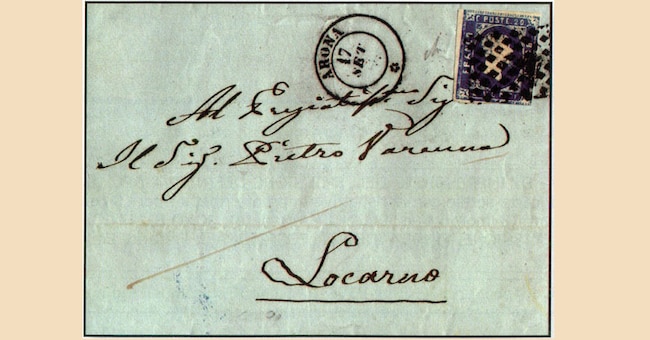 ARONA
17
SET
C. POSTE 20
FRANCO
Al Pregiatiss. Sig.
Il Sig. Pietro Varenna
Locarno